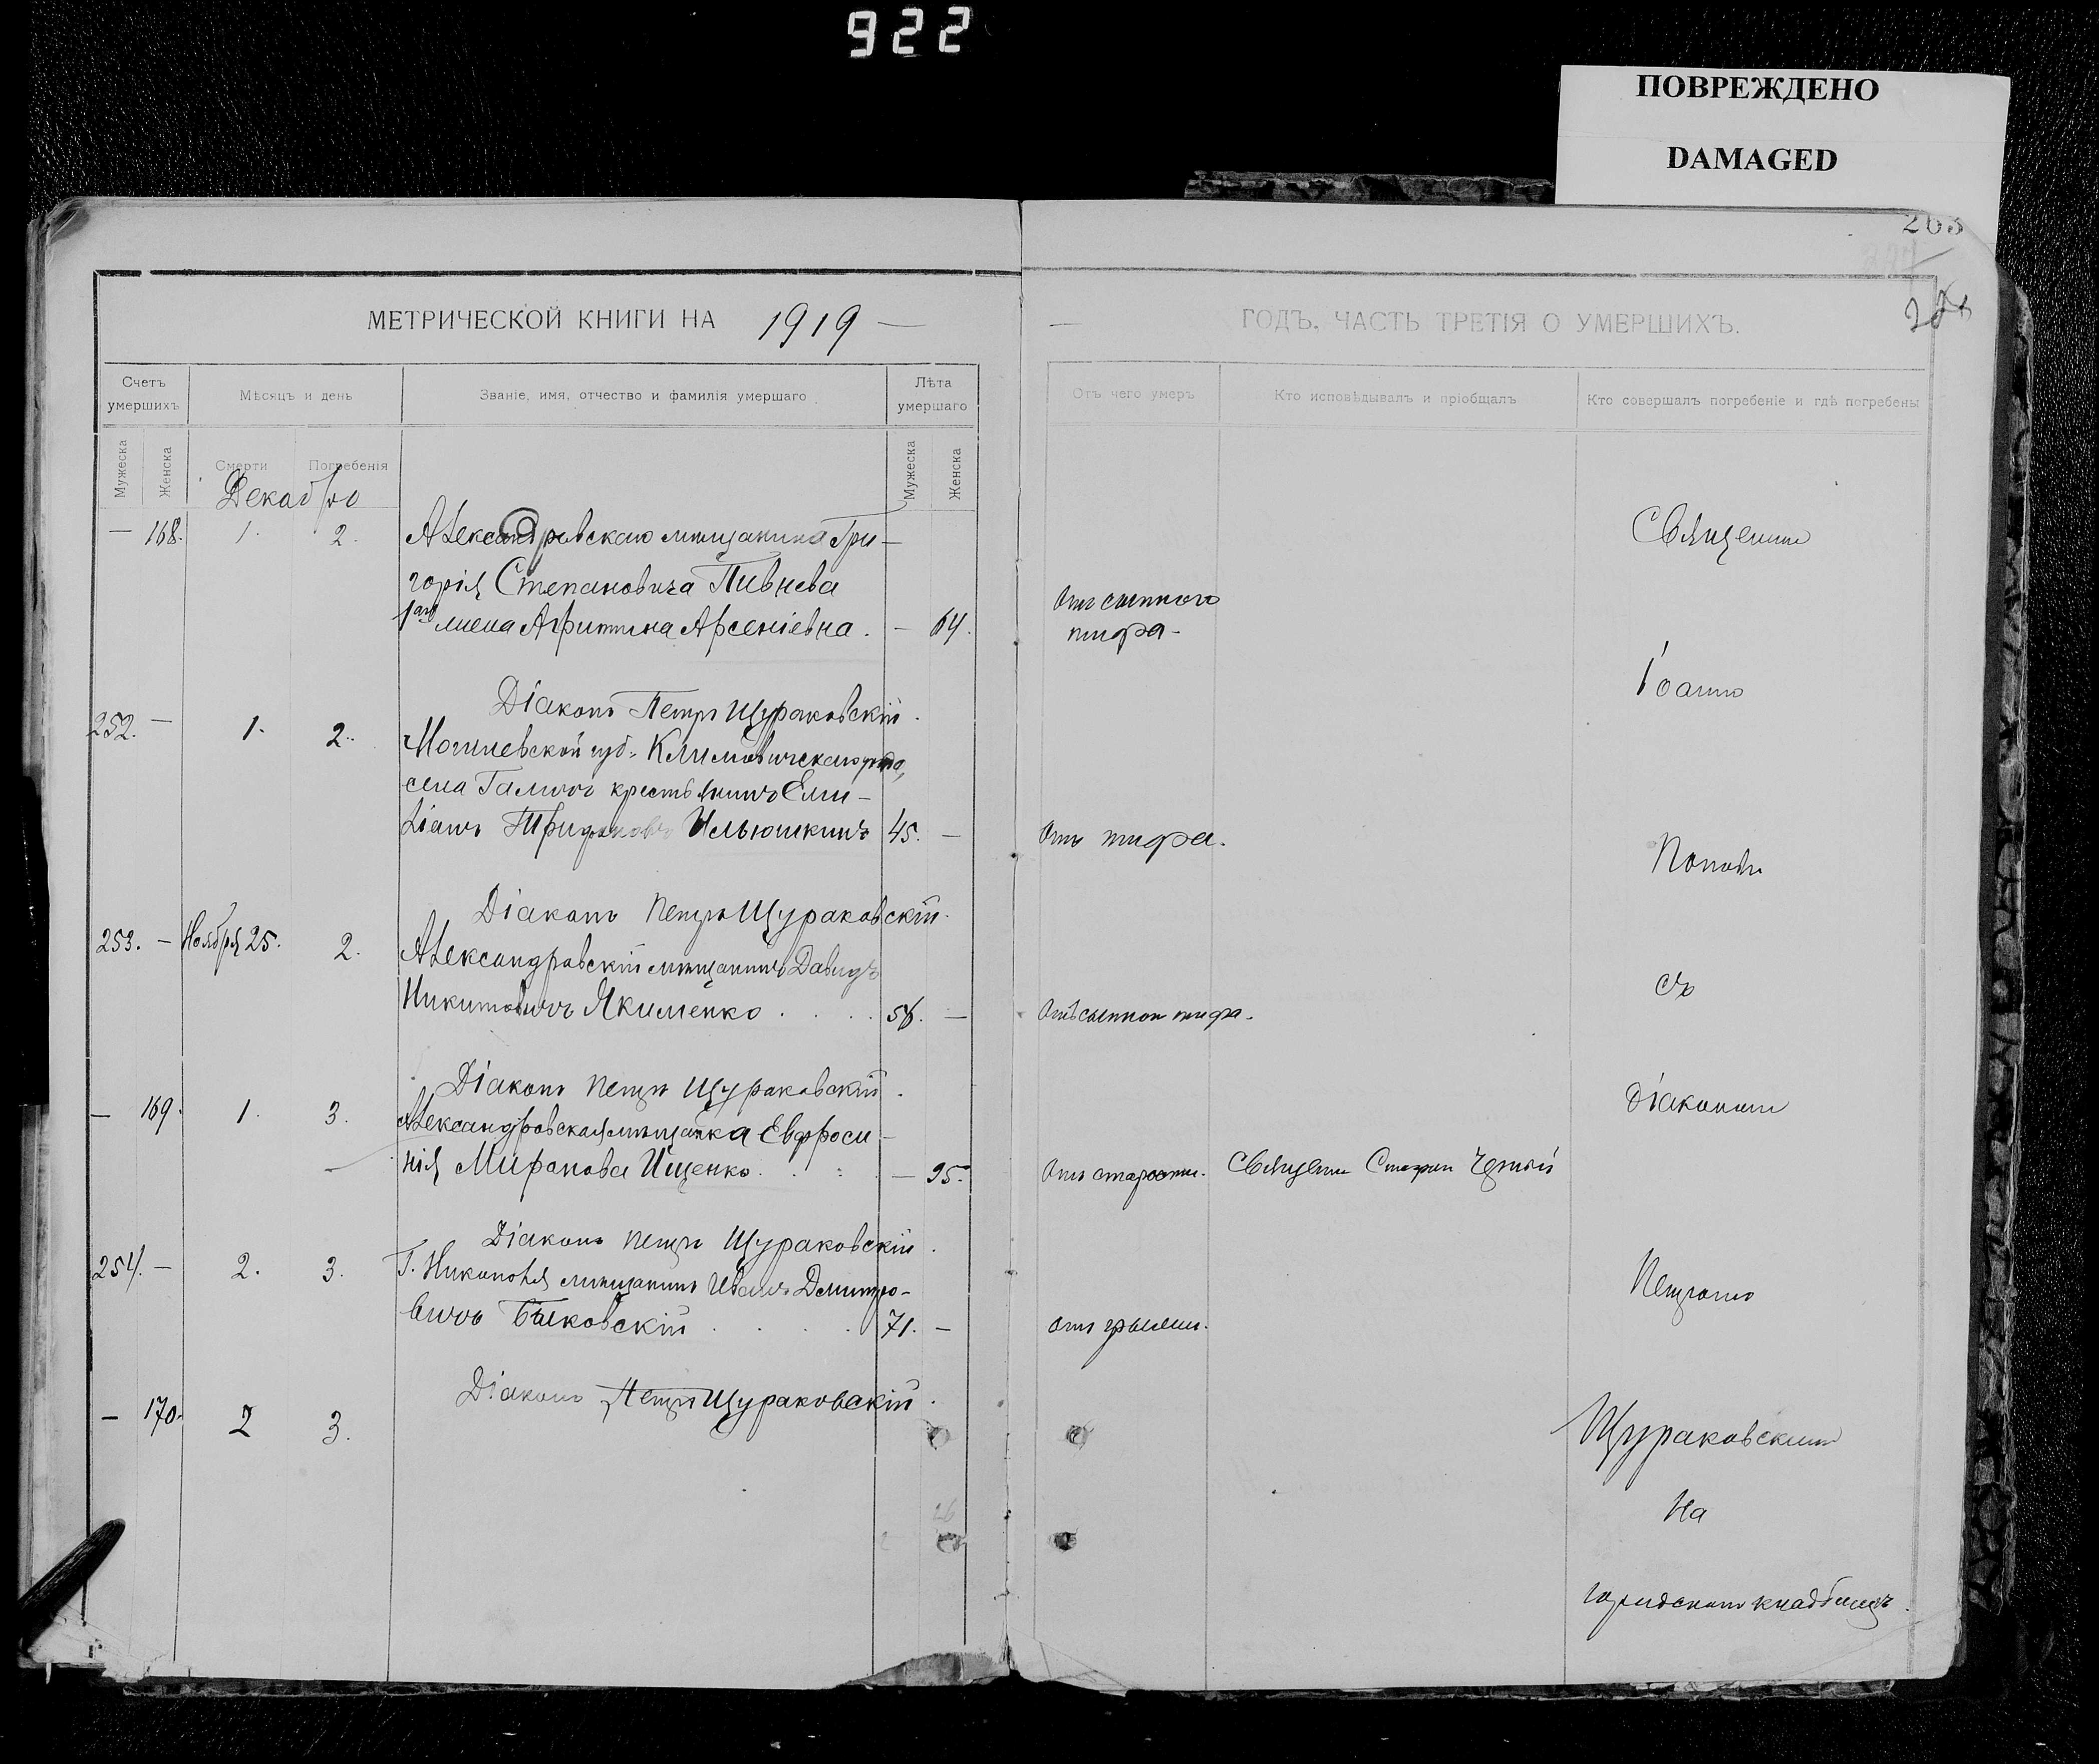 922
ПОВРЕЖДЕНО
DAMAGED
263
МЕТРИЧЕСКОЙ КНИГИ НА 1919 —
— ГОДЪ, ЧАСТЬ ТРЕТІЯ О УМЕРШИХЪ.
Счетъ умершихъ
Мѣсяцъ и день
Званіе, имя, отчество и фамилія умершаго
Лѣта умершаго
Отъ чего умеръ
Кто исповѣдывалъ и пріобщалъ
Кто совершалъ погребеніе и гдѣ погребены
Мужеска
Женска
Смерти
Погребенія
Мужеска
Женска
Декабрь
— 168. 1. 2. Александровскаго мѣщанина Гри-
горія Степановича Пивнева
жена Агрипина Арсеніевна. — 64.
Отъ сыпного
тифа -
Діаконъ Петръ Щураковскій.
252. — 1. 2. Могилевской губ. Климовичскаго уѣзда,
села крестьянинъ Еми-
ліанъ Трифоновъ Ильюшкинъ 45. —
Отъ тифа.
Діаконъ Петръ Щураковскій.
253. — Ноября 25. 2. Александровскій мѣщанинъ Давидъ
Никитовичъ Якименко . . . . —
Отъ сыпного тифа.
Діаконъ Петръ Щураковскій.
— 169. 1. 3. Александровская мѣщанка Евфроси-
нія Миронова Ищенко. . . — 95.
Отъ старости. Священ. Стефан
Діаконъ Петръ Щураковскій.
254. — 2. 3. Г. Никополя мѣщанинъ Иванъ Дмитріе-
вичъ Быковскій . . . . 71. —
отъ грыжи.
Діаконъ Петръ Щураковскій.
— 170. 2 3.
Священникъ
Іоаннъ
Поповъ
съ
діакономъ
Петромъ
Щураковскимъ
На
городскомъ кладбищѣ.